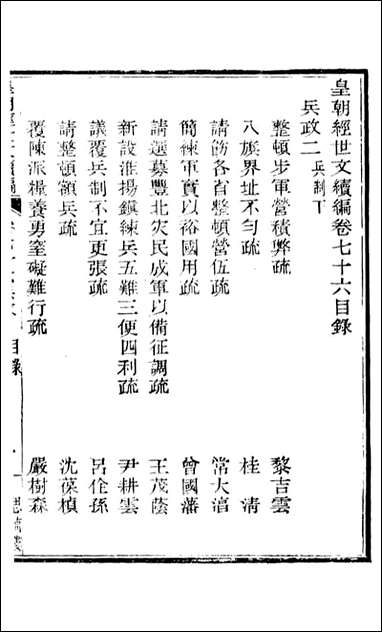 皇朝經世文續編卷七十六目錄
兵政二 兵制下
整頓步軍營積弊疏 黎吉雲
八旗界址不勻疏 桂清
請飭各省整頓營伍疏 常大淳
簡練軍實以裕國用疏 曾國藩
請選募豐北災民成軍以備征調疏 王茂蔭
新設淮揚鎮練兵五難三便四利疏 尹耕雲
議覆兵制不宜更張疏 呂佺孫
請整頓額兵疏 沈葆楨
覆陳派糧養勇窒礙難行疏 嚴樹森
目錄